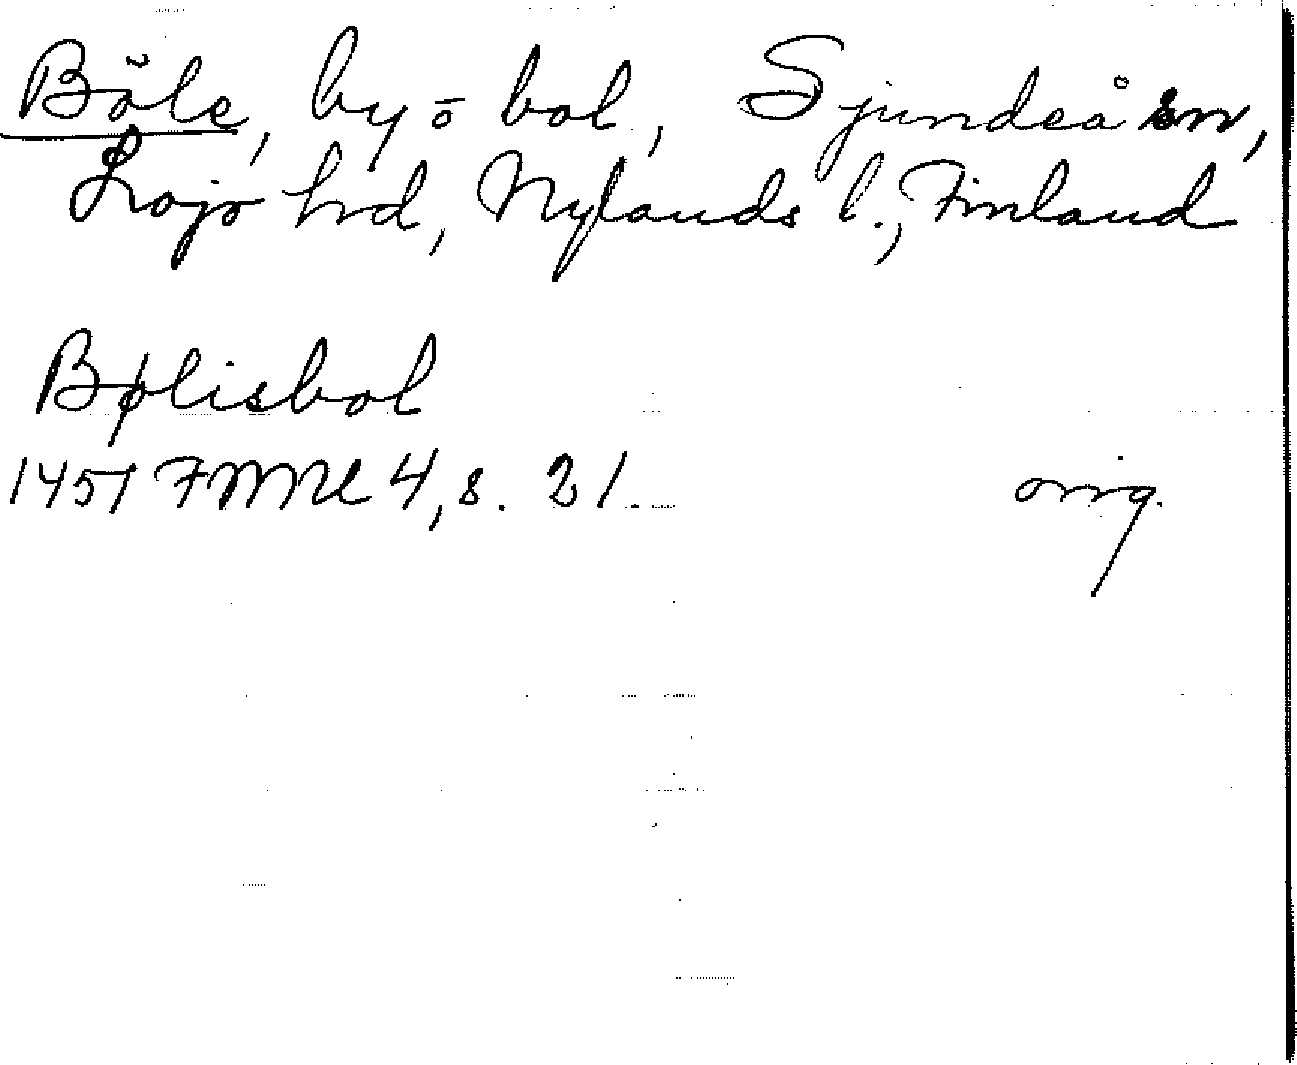 Böle, by o bol, Sjundeå sn,
Lojo hrd, Nylands l., Finland
Bølisbol
1451 FMU 4, s. 21.
orig.